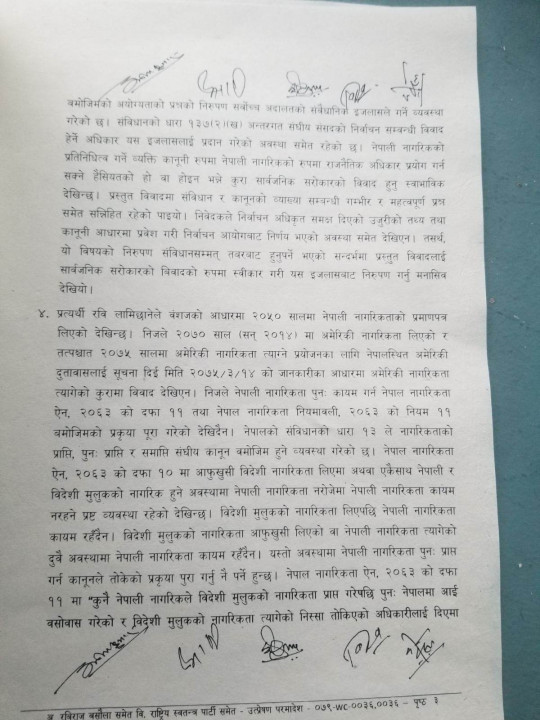 बमोजिमको अयोग्यताको प्रश्नको निरुपण सर्वोच्च अदालतको संवैधानिक इजलासले गर्ने व्यवस्था
गरेको छ। संविधानको धारा १३७(२)(ख) अन्तरगत संघीय संसदको निर्वाचन सम्बन्धी विवाद
हेर्ने अधिकार यस इजलासलाई प्रदान गरेको अवस्था समेत रहेको छ। नेपाली नागरिकको
प्रतिनिधित्व गर्ने व्यक्ति कानूनी रुपमा नेपाली नागरिकको रुपमा राजनैतिक अधिकार प्रयोग गर्न
सक्ने हैसियतको हो वा होइन भन्ने कुरा सार्वजनिक सरोकारको विवाद हुनु स्वाभाविक
देखिन्छ। प्रस्तुत विवादमा संविधान र कानूनको व्याख्या सम्बन्धी गम्भीर र महत्वपूर्ण प्रश्न
समेत सन्निहित रहेको पाइयो। निवेदकले निर्वाचन अधिकृत समक्ष दिएको उजुरीको तथ्य तथा
कानूनी आधारमा प्रवेश गरी निर्वाचन आयोगबाट निर्णय भएको अवस्था समेत देखिएन। तसर्थ,
यो विषयको निरुपण संविधानसम्मत् तवरबाट हुनुपर्ने भएको सन्दर्भमा प्रस्तुत विवादलाई
सार्वजनिक सरोकारको विवादको रुपमा स्वीकार गरी यस इजलासबाट निरुपण गर्नु मनासिव
देखियो।
४. प्रत्यर्थी रवि लामिछानेले वंशजको आधारमा २०५० सालमा नेपाली नागरिकताको प्रमाणपत्र
लिएको देखिन्छ। निजले २०७० साल (सन् २०१४) मा अमेरिकी नागरिकता लिएको र
तत्पश्चात २०७५ सालमा अमेरिकी नागरिकता त्याग्ने प्रयोजनका लागि नेपालस्थित अमेरिकी
दुतावासलाई सूचना दिई मिति २०७५/३/१४ को जानकारीका आधारमा अमेरिकी नागरिकता
त्यागेको कुरामा विवाद देखिएन। निजले नेपाली नागरिकता पुनः कायम गर्न नेपाल नागरिकता
ऐन, २०६३ को दफा ११ तथा नेपाल नागरिकता नियमावली, २०६३ को नियम ११
बमोजिमको प्रकृया पूरा गरेको देखिदैन। नेपालको संविधानको धारा १३ ले नागरिकताको
प्राप्ति, पुनः प्राप्ति र समाप्ति संघीय कानून बमोजिम हुने व्यवस्था गरेको छ। नेपाल नागरिकता
ऐन, २०६३ को दफा १० मा आफुखुसी विदेशी नागरिकता लिएमा अथवा एकैसाथ नेपाली र
विदेशी मुलुकको नागरिक हुने अवस्थामा नेपाली नागरिकता नरोजेमा नेपाली नागरिकता कायम
नरहने प्रष्ट व्यवस्था रहेको देखिन्छ। विदेशी मुलुकको नागरिकता लिएपछि नेपाली नागरिकता
कायम रहँदैन। विदेशी मुलुकको नागरिकता आफुखुसी लिएको वा नेपाली नागरिकता त्यागेको
दुवै अवस्थामा नेपाली नागरिकता कायम रहँदैन। यस्तो अवस्थामा नेपाली नागरिकता पुनः प्राप्त
गर्न कानूनले तोकेको प्रकृया पुरा गर्नु नै पर्ने हुन्छ। नेपाल नागरिकता ऐन, २०६३ को दफा
११ मा "कुनै नेपाली नागरिकले विदेशी मुलुकको नागरिकता प्राप्त गरेपछि पुनः नेपालमा आई
बसोवास गरेको र विदेशी मुलुकको नागरिकता त्यागेको निस्सा तोकिएको अधिकारीलाई दिएमा
अ. रविराज बसौला समेत वि. राष्ट्रिय स्वतन्त्र पार्टी समेत - उत्प्रेषण परमादेश - ०७९-WC-००३६,००३६ - पृष्ठ ३